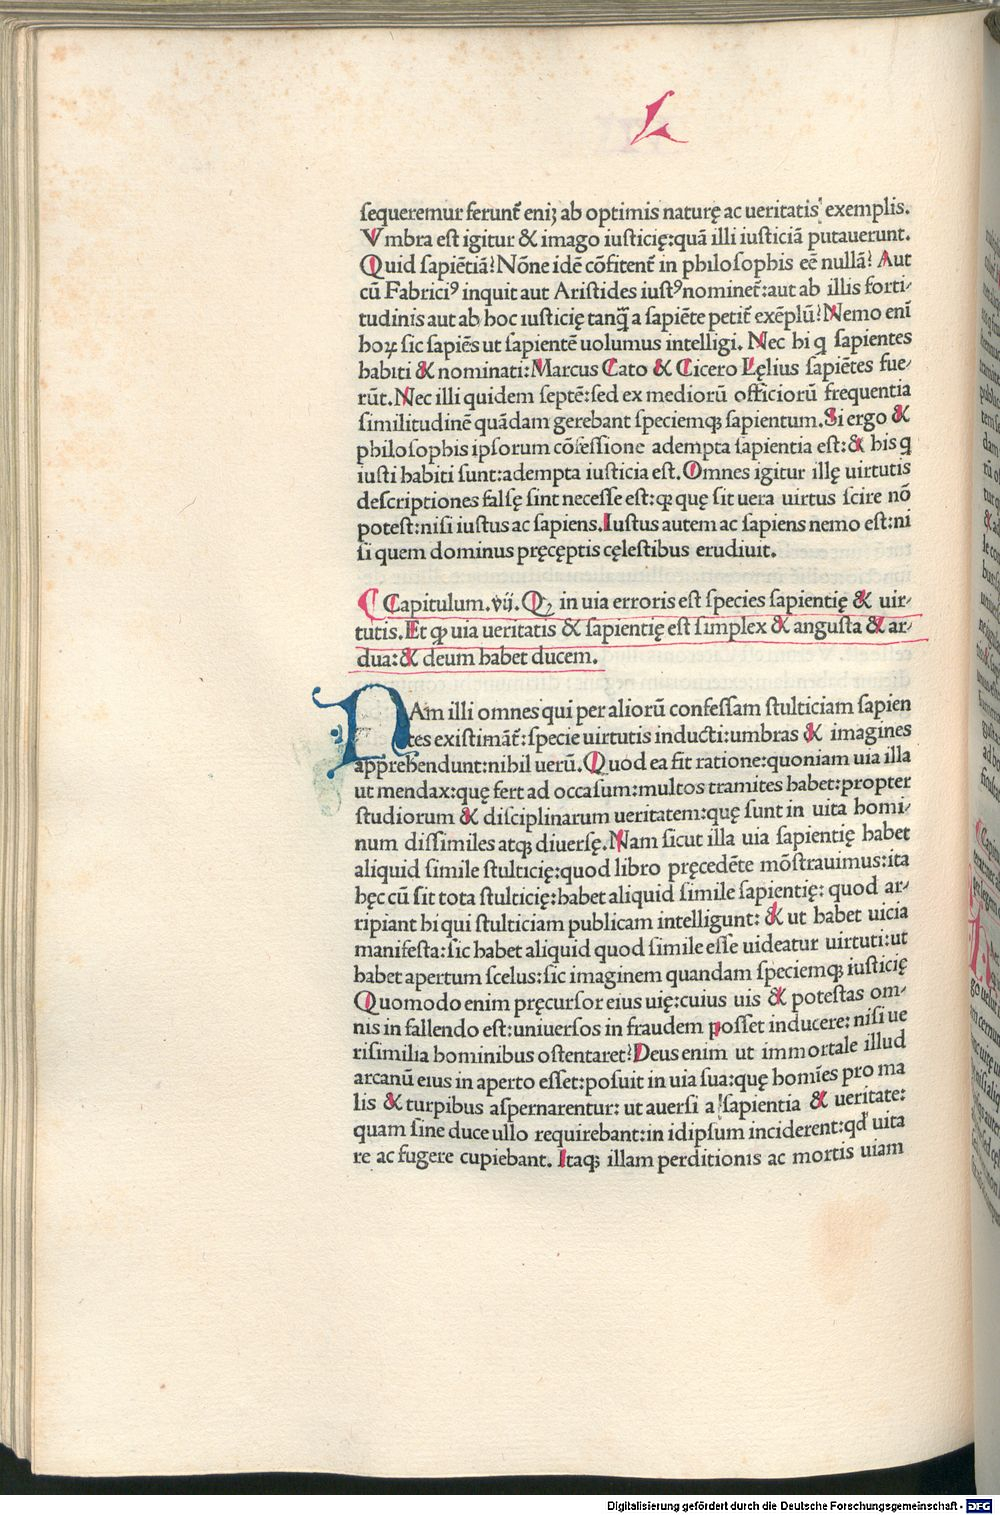 L
ſequeremur ferunt̃ eniꝫ ab optimis naturę ac ueritatis exemplis.
Vmbra eſt igitur & imago iuſticię:quā illi iuſticiā putauerunt.
Quid ſapiētiā? Nōne idē cōfitent̃ in philoſophis eē nullā? Aut
cū Fabriciꝰ inquit aut Ariſtides iuſtꝰ nominet̃:aut ab illis forti-
tudinis aut ab hoc iuſticię tanq̃ a ſapiēte petit̃ exēplū? Nemo eni̅
hoꝝ ſic ſapiēs ut ſapientē uolumus intelligi. Nec hi q ſapientes
habiti & nominati:Marcus Cato & Cicero Lęlius ſapiētes fue-
rūt. Nec illi quidem ſeptē:ſed ex mediorū officiorū frequentia
ſimilitudinē quādam gerebant ſpeciemqꝫ ſapientum. Si ergo &
philoſophis ipſorum cōfeſſione adempta ſapientia eſt:& his q
iuſti habiti ſunt:adempta iuſticia eſt. Omnes igitur illę uirtutis
deſcriptiones falſę ſint neceſſe eſt:qꝫ quę ſit uera uirtus ſcire nō
poteſt:niſi iuſtus ac ſapiens. Iuſtus autem ac ſapiens nemo eſt:ni
ſi quem dominus pręceptis cęleſtibus erudiuit.
Capitulum.vij. Qꝫ in uia erroris eſt ſpecies ſapientię & uir-
tutis. Et qꝫ uia ueritatis & ſapientię eſt ſimplex & anguſta & ar-
dua:& deum habet ducem.
NAm illi omnes qui per aliorū confeſſam ſtulticiam ſapien
tes exiſtimāt̃:ſpecie uirtutis inducti:umbras & imagines
apprehendunt:nihil uerū. Quod ea fit ratione:quoniam uia illa
ut mendax:quę fert ad occaſum:multos tramites habet:propter
ſtudiorum & diſciplinarum ueritatem:quę ſunt in uita homi-
num diſſimiles atqꝫ diuerſę. Nam ſicut illa uia ſapientię habet
aliquid ſimile ſtulticię:quod libro pręcedēte mōſtrauimus:ita
hęc cū ſit tota ſtulticię:habet aliquid ſimile ſapientię: quod ar-
ripiant hi qui ſtulticiam publicam intelligunt: & ut habet uicia
manifeſta:ſic habet aliquid quod ſimile eſſe uideatur uirtuti:ut
habet apertum ſcelus:ſic imaginem quandam ſpeciemqꝫ iuſticię
Quomodo enim pręcurſor eius uię:cuius uis & poteſtas om-
nis in fallendo eſt:uniuerſos in fraudem poſſet inducere: niſi ue
riſimilia hominibus oſtentaret? Deus enim ut immortale illud
arcanū eius in aperto eſſet:poſuit in uia ſua:quę homi̅es pro ma
lis & turpibus aſpernarentur: ut auerſi a ſapientia & ueritate:
quam ſine duce ullo requirebant:in idipſum inciderent:qd̓ uita
re ac fugere cupiebant. Itaqꝫ illam perditionis ac mortis uiam
Digitalisierung gefördert durch die Deutsche Forschungsgemeinschaft - DFG